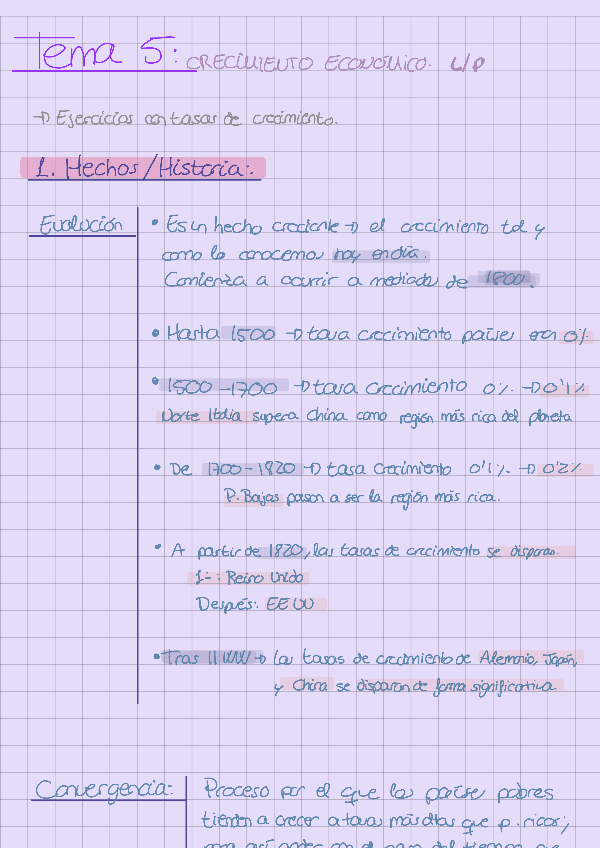 Tema 5: CRECIMIENTO ECONÓMICO. L/P
→ Ejercicios con tasas de crecimiento.
1. Hechos/Historia:
Evolución
• Es un hecho creciente → el crecimiento tal y
como lo conocemos hoy en día.
Comienza a ocurrir a mediados de 1800.
• Hasta 1500 → tasa crecimiento países eran 0%
• 1500-1700 → tasa crecimiento 0% → 0'1%
Norte Italia supera China como región más rica del planeta
• De 1700-1820 → tasa crecimiento 0'1% → 0'2%
P. Bajas pasan a ser la región más rica.
• A partir de 1820, las tasas de crecimiento se disparan.
1º: Reino Unido
Después: EEUU
• Tras II WW → las tasas de crecimiento de Alemania, Japón,
y China se disparan de forma significativa
Convergencia:
Proceso por el que los países pobres
tienden a crecer a tasas más altas que p. ricos;
para así poder con el paso del tiempo